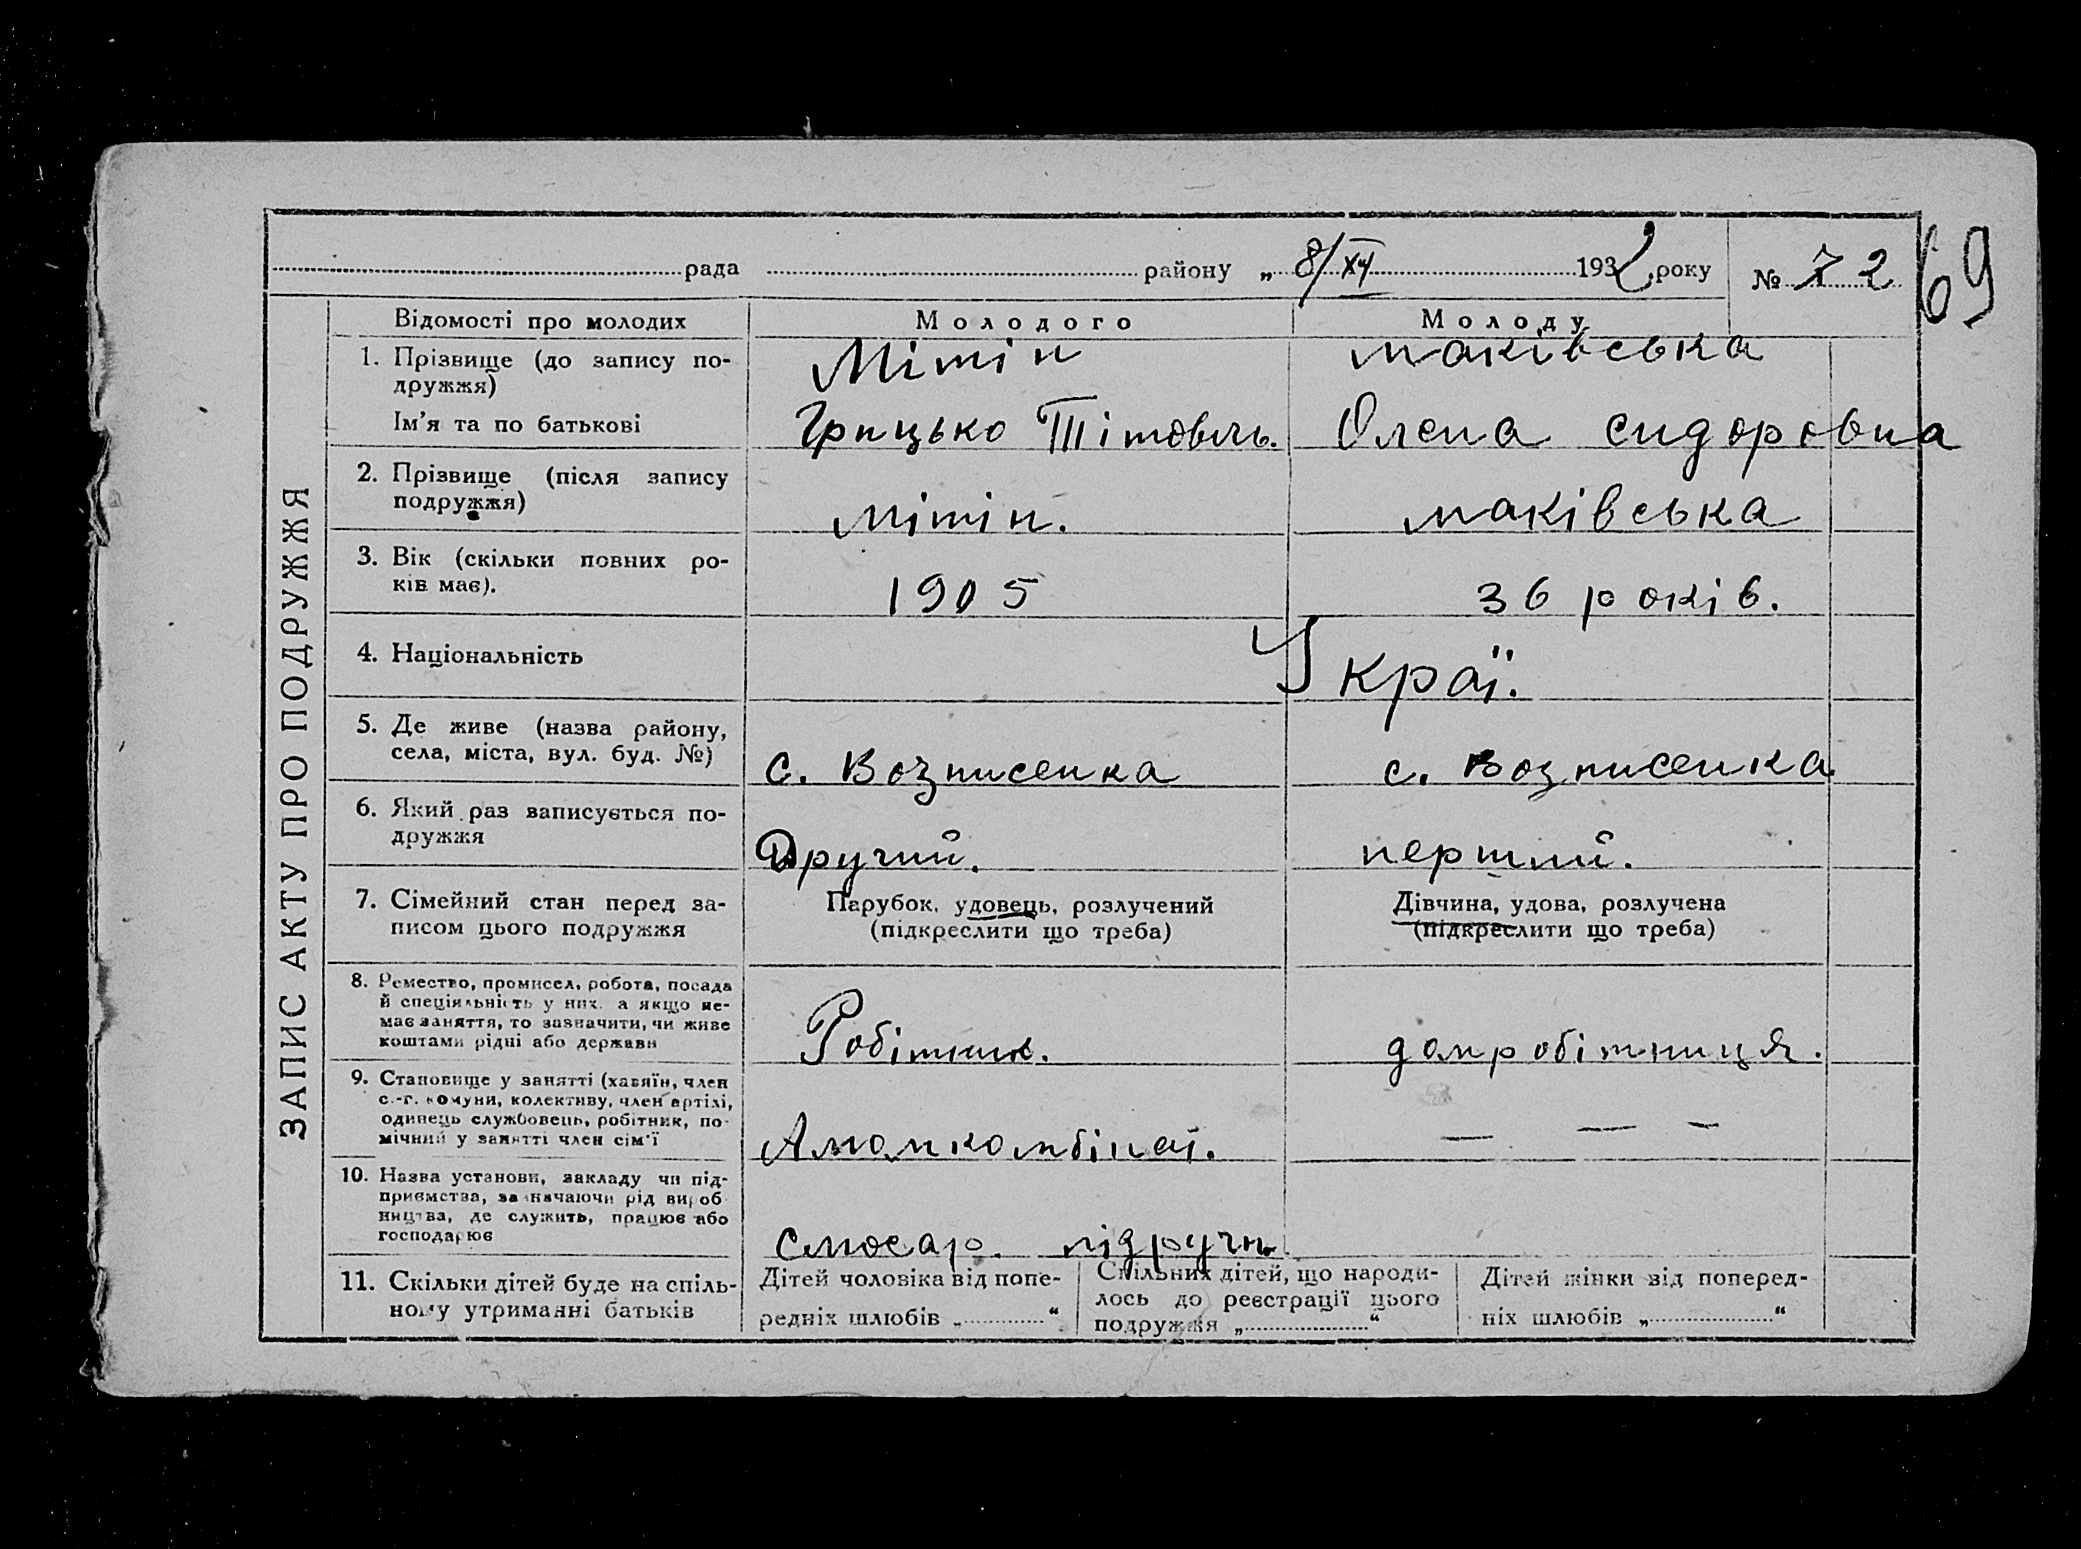 рада району „ 8/XII 1932 року № 72
69
ЗАПИС АКТУ ПРО ПОДРУЖЖЯ
Відомості про молодих
Молодого
Молоду
1. Прізвище (до запису по-
дружжя)
Мітін
маківська
Ім'я та по батькові
Грицько Тітовичь.
Олена сидоровна
2. Прізвище (після запису
подружжя)
мітін.
маківська
3. Вік (скільки повних ро-
ків має).
1905
36 років.
4. Національність
Украї.
5. Де живе (назва району,
села, міста, вул. буд. №)
с. Вознисенка
с. Вознисенка.
6. Який раз записується по-
дружжя
Другий.
перший.
7. Сімейний стан перед за-
писом цього подружжя
Парубок, удовець, розлучений
(підкреслити що треба)
Дівчина, удова, розлучена
(підкреслити що треба)
8. Ремество, промисел, робота, посада
й спеціяльність у них, а якщо не-
має заняття, то зазначити, чи живе
коштами рідні або держави
Робітник.
домробітниця.
9. Становище у занятті (хазяїн, член
с.-г. комуни, колективу, член артілі,
одинець службовець, робітник, по-
мічний у занятті член сім'ї
— — —
10. Назва установи, закладу чи під-
приємства, зазначаючи рід вироб
ництва, де служить, працює або
господарює
слюсар. підручн.
11. Скільки дітей буде на спіль-
ному утриманні батьків
Дітей чоловіка від попе-
редніх шлюбів „ “
Спільних дітей, що народи-
лось до реєстрації цього
подружжя „ “
Дітей жінки від поперед-
ніх шлюбів „ “